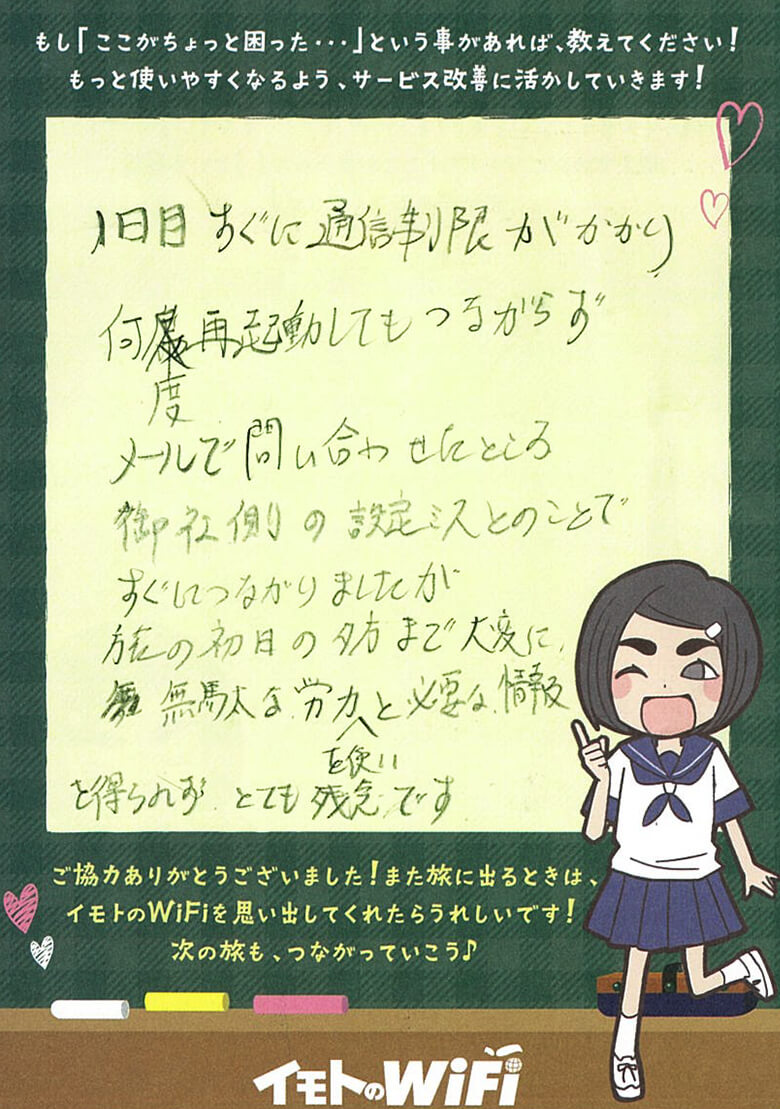 もし「ここがちょっと困った・・・」という事があれば、教えてください!
もっと使いやすくなるよう、サービス改善に活かしていきます!
1日目 すぐに通信制限がかかり
何度再起動してもつながらず
メールで問い合わせたところ
御社側の設定ミスとのことで
すぐにつながりましたが
旅の初日の夕方まで大変に
無駄な労力を使いと必要な情報
を得られず とても残念です
ご協力ありがとうございました!また旅に出るときは、
イモトのWiFiを思い出してくれたらうれしいです!
次の旅も、つながっていこう♪
イモトのWiFi